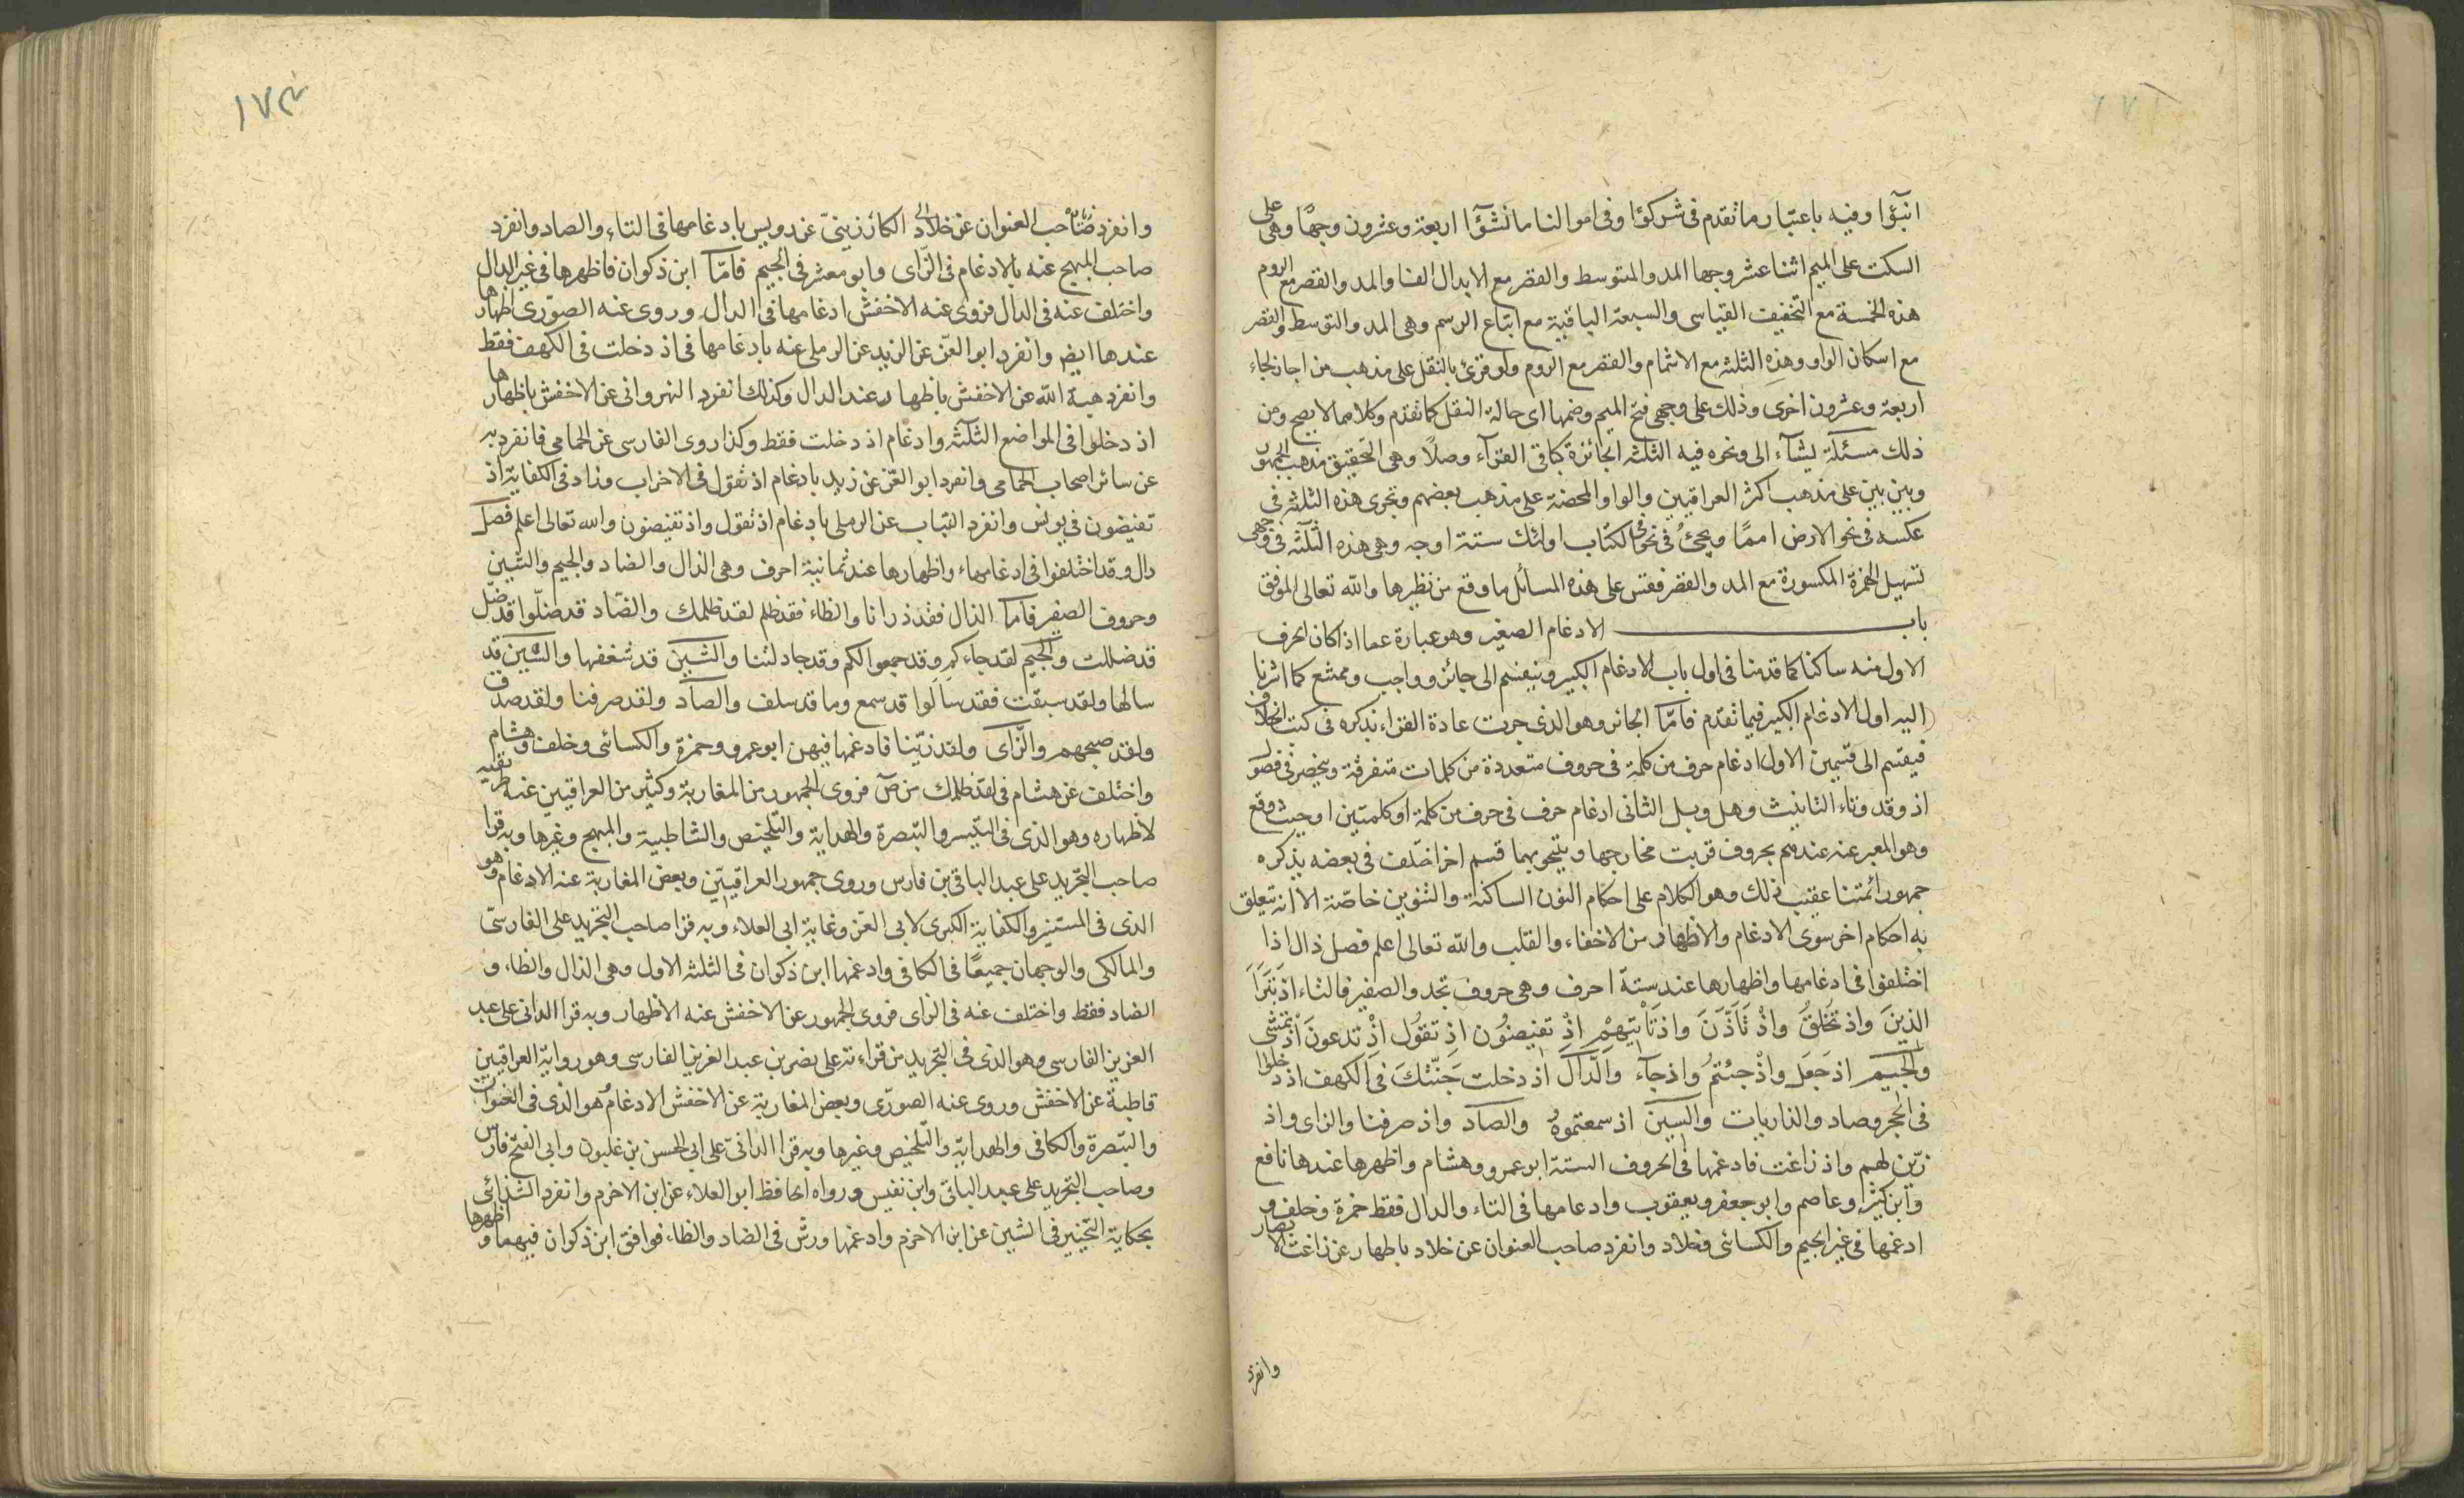 انبؤا وفيه باعتبار ما تقدم فى شركؤا وفى اموالنا ما نشؤا اربعة وعشرون وجها وهى على
السكت على الميم اثنا عشر وجها المد والمتوسط والقصر مع الابدال الفا والمد والقصر مع الروم
هذه الخمسة مع التخفيف القياسى والسبعة الباقية مع اتباع الرسم وهى المد والتوسط والقصر
مع اسكان الواو وهذه الثلثة مع الاشمام والقصر مع الروم ولو قرئ بالنقل على مذهب من اجاز لجاء
اربعة وعشرون اخرى وذلك على وجهى فتح الميم وضمها اى حالة النقل كما تقدم وكلاهما لا يصح ومن
ذلك مسئلة يشآء الى ونحوه فيه الثلثة الجائزة كباقى القرآء وصلا وهى التحقيق مذهب الجمهور
وبين بين على مذهب اكثر العراقيين والواو المحضة على مذهب بعضهم وتجرى هذه الثلثة فى
عكسه فى نحو الارض امما ويجئ فى نحو الكتاب اولئك ستة اوجه وهى هذه الثلثة فى وجهى
تسهيل الهمزة المكسورة مع المد والقصر فقس على هذه المسائل ما وقع من نظيرها والله تعالى الموفق
باب الادغام الصغير وهو عبارة عما اذا كان الحرف
الاول منه ساكنا كما قدمنا فى اول باب الادغام الكبير وينقسم الى جائز وواجب وممتنع كما اشرنا
اليه اول الادغام الكبير فيما تقدم فامّا الجائز وهو الذى جرت عادة القراء بذكره فى كتب الخلاف
فيقسم الى قسمين الاول ادغام حرف من كلمة فى حروف متعددة من كلمات متفرقة وينحصر فى فصول
اذ وقد وتاء التانيث وهل وبل الثانى ادغام حرف فى حرف من كلمة او كلمتين او حيث وقع
وهو المعبر عنه عندهم بحروف قربت مخارجها ويلتحق بهما قسم اخر اختلف فى بعضه يذكره
جمهور ائمتنا عقيب ذلك وهو الكلام على احكام النون الساكنة والتنوين خاصة الا انه يتعلق
به احكام اخر سوى الادغام والاظهار من الاخفاء والقلب والله تعالى اعلم فصل ذال اذا
اختلفوا فى ادغامها واظهارها عند ستة احرف وهى حروف تجد والصفير فالتاء اذ تبرّا
الذينَ واذ تخلقُ واذْ تَاَذّنَ واذ تَاْتيهِمْ اذْ تفيضوُن اذِ تقوُل اذْ تدعونَ اذْ تمشى
والجيم اذ جَعَلَ واذْ جئتمُ واذ جآءَ والدّال اذ دخلت جَنّتكَ فى الكهف اذ دخلوا
فى الحجر وصاد والذاريات والسين اذ سمعتموهُ والصاد واذ صرفنا والزاى واذ
زيّن لهم واذ زاغت فادغمها فى الحروف الستة ابو عمرو وهشام واظهرها عندها نافع
وابن كثير وعاصم وابو جعفر ويعقوب وادغامها فى التاء والدال فقط حمزة وخلف و
ادغمها فى غير الجيم والكسائى وخلاد وانفرد صاحب العنوان عن خلاد باظهار عن زاغت الابصار
وانفرد
١٧٣
وانفرد صاحب العنوان عن خلاد الكازرينىّ عن رويس بادغامها فى التاء والصاد وانفرد
صاحب المبهج عنه بالادغام فى الزّاى وابو معشر فى الجيم فامّا ابن ذكوان فاظهرها فى غير الدال
واختلف عنه فى الدال فروى عنه الاخفش ادغامها فى الدال وروى عنه الصّورى اظهارها
عندها ايض وانفرد ابو العزّ عن الزيد عن الرملى عنه بادغامها فى اذ دخلت فى الكهف فقط
وانفرد هبة الله عن الاخفش باظهار عند الدال وكذلك انفرد النهروانى عن الاخفش باظهارها
اذ دخلوا فى المواضع الثلثة وادغام اذ دخلت فقط وكذا روى الفارسى عن الحمامى فانفرد به
عن سائر اصحاب الحمامى وانفرد ابو العزّ عن زيد بادغام اذ تقول فى الاحزاب وزاد فى الكفاية اذ
تفيضون فى يونس وانفرد القباب عن الرملى بادغام اذ تقول واذ تفيضون والله تعالى اعلم فصل
دال وقد اختلفوا فى ادغامهاء واظهارها عند ثمانية احرف وهى الذال والضاد والجيم والشين
وحروف الصفير فامّا الذال فقد ذرانا والظاء فقد ظلم لقد ظلمك والضّاد قد ضلّوا قد ضلّ
قد ضللت والجيم لقد جاءكم وقد جمعوا لكم وقد جادلتنا والشين قد شغفها والسّين قد
سالها ولقد سبقت فقد سَاَلوا قد سمع وما قد سلف والصّاد ولقد صرفنا ولقد صدق
ولقد صبحهم والزّاى ولقد زيّنا فادغمها فيهن ابو عمرو وحمزة والكسائى وخلف وهشام
واختلف عن هشام فى لقد ظلمك من صٓ فروى الجمهور من المغاربة وكثير من العراقيين عنه طريقيه
لاظهاره وهو الذى فى التّيسير والتّبصرة والهداية والتّلخيص والشاطبية والمبهج وغيرها وبه قرا
صاحب التّجريد على عبد الباقى بن فارس وروى جمهور العراقييّن وبعض المغاربة عنه الادغام وهو
الذى فى المستنير والكفاية الكبرى لابى العزّ وغاية ابى العلاء وبه قرا صاحب التّجريد على الفارسىّ
والمالكى والوجهان جميعًا فى الكافى وادغمها ابن ذكوان فى الثلثة الاول وهى الذال والظاء و
الضاد فقط واختلف عنه فى الزاى فروى الجمهور عن الاخفش عنه الاظهار وبه قرا الدانى على عبد
العزيز الفارسى وهو الذى فى التّجريد من قراءته على نصر بن عبد العزيز الفارسى وهو رواية العراقيين
قاطبة عن الاخفش وروى عنه الصورّى وبعض المغاربة عن الاخفش الادغام هو الذى فى العنوان
والتّبصرة والكافى والهداية والتّلخيص وغيرها وبه قرا الدّانىّ على ابى الحسن بن غلبون وابى الفتح فارس
وصاحب التجريد على عبد الباقى وابن نفيس ورواه الحافظ ابو العلاء عن ابن الاخرم وانفرد الشذائى
بحكاية التّخيير فى الشين عن ابن الاخرم وادغمها ورش فى الضاد والظاء فوافق ابن ذكوان فيهما و اظهرها